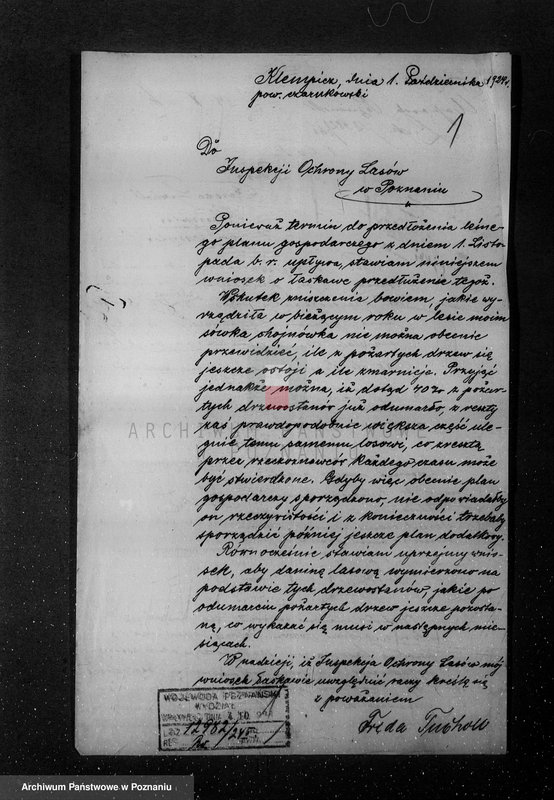 Klempicz, dnia 1. Października 1924r.
pow. czarnkowski
1
Do
Inspekcji Ochrony Lasów
w Poznaniu
Ponieważ termin do przedłożenia leśne-
go planu gospodarczego z dniem 1. Listo-
pada b. r. upływa, stawiam niniejszem
wniosek o łaskawe przedłużenie tegoż.
Wskutek zniszczenia bowiem, jakie wy-
rządziła w bieżącym roku w lesie moim
sówka chojnówka nie można obecnie
przewidzieć, ile z pożartych drzew się
jeszcze ostoji a ile zmarnieje. Przyjąć
jednakże można, iż dotąd 40% z pożar-
tych drzewostanów już odumarło, z reszty
zaś prawdopodobnie większa część ule-
gnie temu samemu losowi, co zresztą
przez rzeczoznawców każdego czasu może
być stwierdzone. Gdyby więc obecnie plan
gospodarczy sporządzono, nie odpowiadałby
on rzeczywistości i z konieczności trzebaby
sporządzić później jeszcze plan dodatkowy.
Równocześnie stawiam uprzejmy wnio-
sek, aby daninę lasową wymierzono na
podstawie tych drzewostanów, jakie po
odumarciu pożartych drzew jeszcze pozosta-
ną, co wykazać się musi w następnych mie-
siącach.
W nadzieji, iż Inspekcja Ochrony Lasów mój
wniosek łaskawie uwzględnić raczy kreślę się
z poważaniem
Freda Tucholl
WOJEWODA POZNAŃSKI
WYDZIAŁ
L.DZ. 12982/24
ARCHIWUM PAŃSTWOWE
POZNAŃ
Archiwum Państwowe w Poznaniu